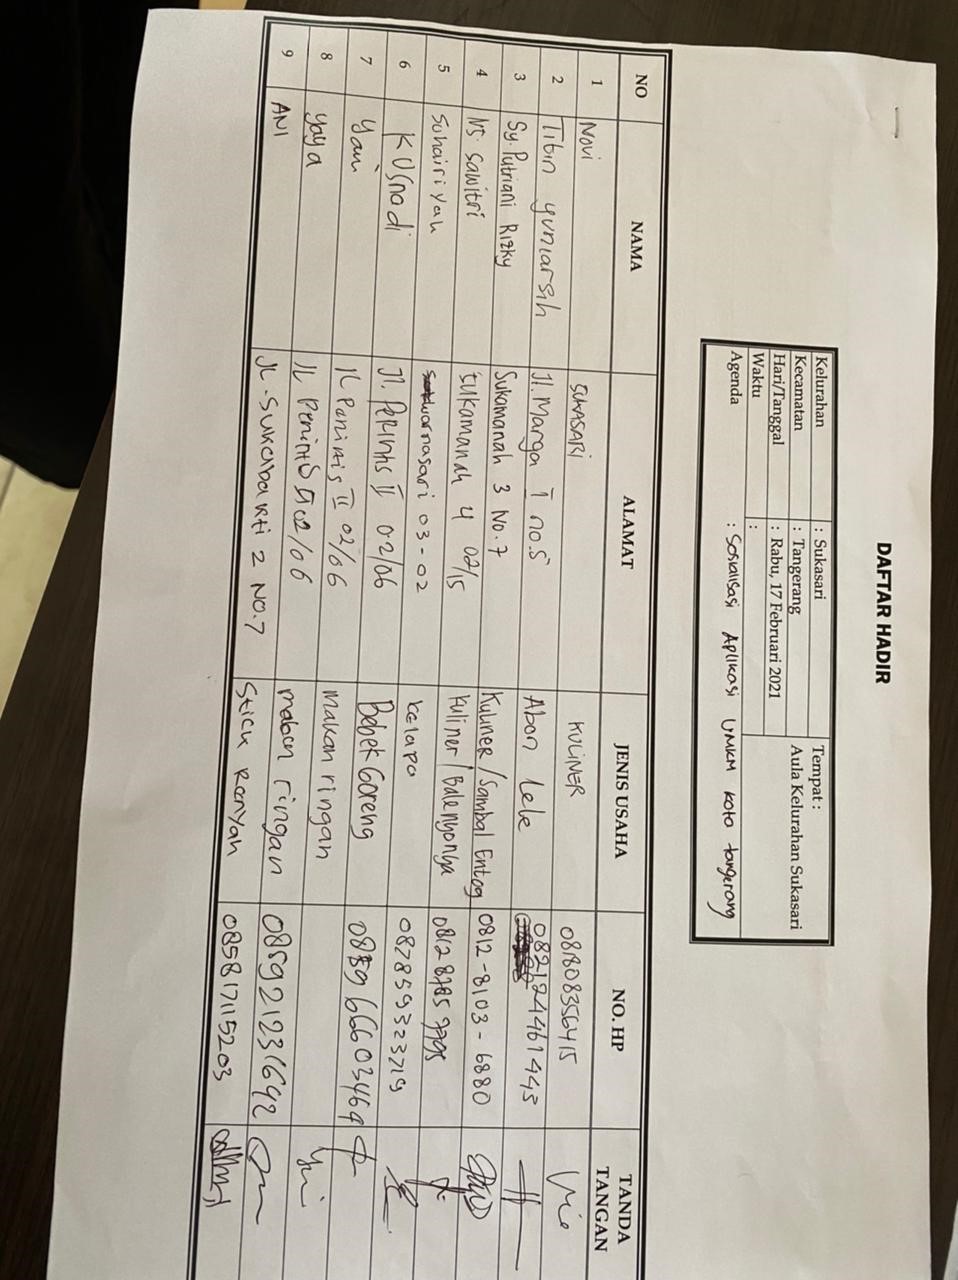 DAFTAR HADIR
Kelurahan : Sukasari Tempat :
Kecamatan : Tangerang Aula Kelurahan Sukasari
Hari/Tanggal : Rabu, 17 Februari 2021
Waktu :
Agenda : Sosialisasi Aplikasi UMKM Kota tangerang
NO NAMA ALAMAT JENIS USAHA NO. HP TANDA TANGAN
1 Novi SUKASARI KULINER 081808356415
2 Titin yuniarsih Jl. Marga I no.5 Abon Lele 082124461443
3 Sy. Putriani Rizky Sukamanah 3 No.7 Kuliner/Sambal Entog 0812-8103-6880
4 NS. Sawitri Sukamanah 4 02/15 Kuliner/Balenyonya 0812 8785 7795
5 Suhairiyah warnasari 03-02 Kelapa 087859323719
6 KUSnadi Jl. PERINtis II 02/06 Bebek Goreng 089666603464
7 Yani JL Perintis II 02/06 makan ringan
8 yaya JL Perintis II 02/06 makan ringan 085921231642
9 ANI JL. Sukabakti 2 NO.7 Stick Renyah 085817115203